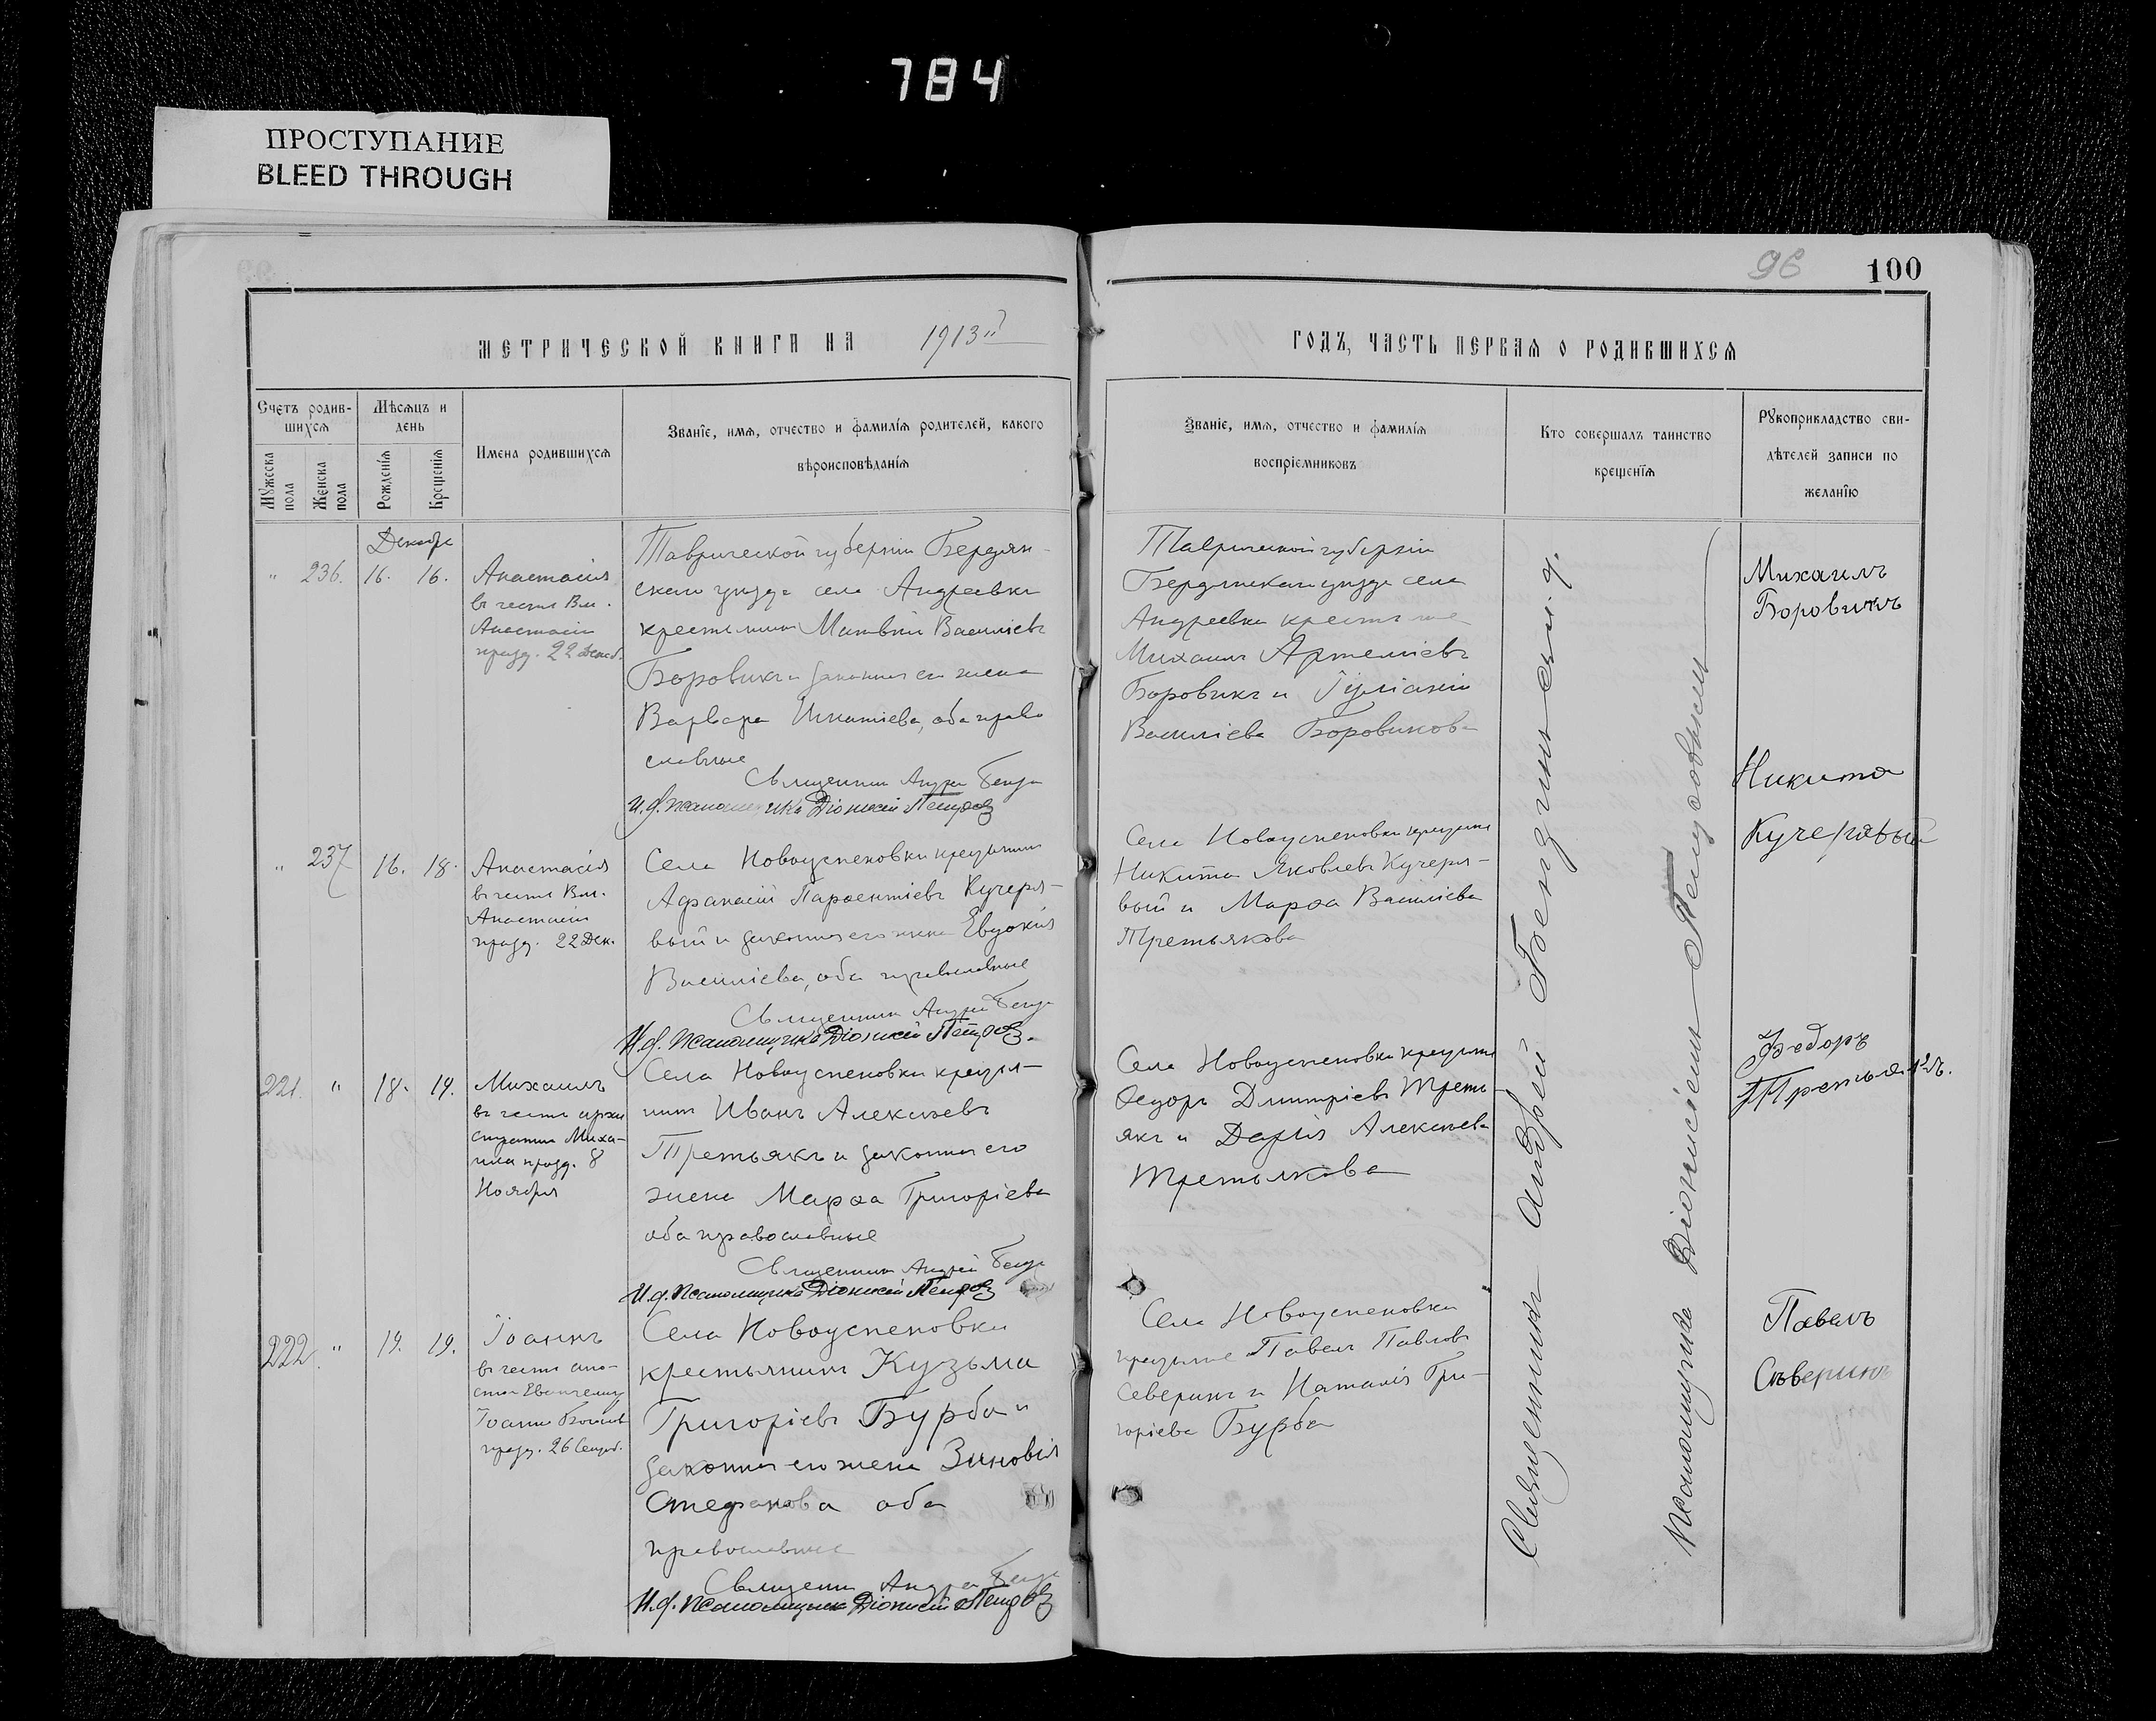 784
ПРОСТУПАНИЕ
BLEED THROUGH
96 100
МЕТРИЧЕСКОЙ КНИГИ НА 1913й
ГОДЪ, ЧАСТЬ ПЕРВАЯ О РОДИВШИХСЯ
Счетъ родив-
шихся
Мужеска пола
Женска пола
Мѣсяцъ и
день
Рожденія
Крещенія
Имена родившихся
Званіе, имя, отчество и фамилія родителей, какого
вѣроисповѣданія
Званіе, имя, отчество и фамилія
воспріемниковъ
Кто совершалъ таинство
крещенія
Рукоприкладство сви-
дѣтелей записи по
желанію
Декабр
" 236. 16. 16.
Анастасія
въ честь Вм.
Анастасіи
празд. 22 Декаб.
Таврической губерніи Бердян-
скаго уѣзда села Андреевки
крестьянинъ Матвѣй Василіевъ
Боровикъ и законная его жена
Варвара Игнатіева, оба право
славные
Священникъ Андрей Бенза
И. д. псаломщика Діонисій Петровъ
Таврической губерніи
Бердянскаго уѣзда села
Андреевки крестьяне
Михаилъ Артеміевъ
Боровикъ и Іуліанія
Василіева Боровикова
Михаилъ
Боровикъ
" 237 16. 18.
Анастасія
въ честь Вм.
Анастасіи
празд. 22 Дек.
Села Новоуспеновки крестьянинъ
Афанасій Парѳентіевъ Кучеря-
вый и законная его жена Евдокія
Василіева, оба православные
Священникъ Андрей Бенза
И. д. псаломщика Діонисій Петровъ.
Села Новоуспеновки крестьяне
Никита Яковлевъ Кучеря-
вый и Марѳа Василіева
Третьякова
Никита
Кучерявый
221. " 18. 19.
Михаилъ
въ честь архи
стратига Миха-
ила празд. 8
Ноября
Села Новоуспеновки крестья-
нинъ Иванъ Алексѣевъ
Третьякъ и законная его
жена Марѳа Григоріева
оба православные
Священникъ Андрей Бенза
И. д. псаломщика Діонисій Петровъ
Села Новоуспеновки крестьяне
Ѳедоръ Димитріевъ Треть-
якъ и Дарія Алексѣева
Третьякова
Федоръ
Третьякъ.
222. " 19. 19.
Іоаннъ
въ честь апо-
стола Евангелиста
Іоанна Богослова
празд. 26 Сентяб.
Села Новоуспеновки
крестьянинъ Кузьма
Григоріевъ Бурба и
законная его жена Зиновія
Стефанова оба
православные
Священникъ Андрей Бенза
И. д. псаломщика Діонисій Петровъ
Села Новоуспеновки
крестьяне Павелъ Павловъ
Северинъ и Наталія Гри-
горіева Бурба
Павелъ
Съверинъ
Священникъ Андрей
Псаломщика Діонисіемъ Петровымъ